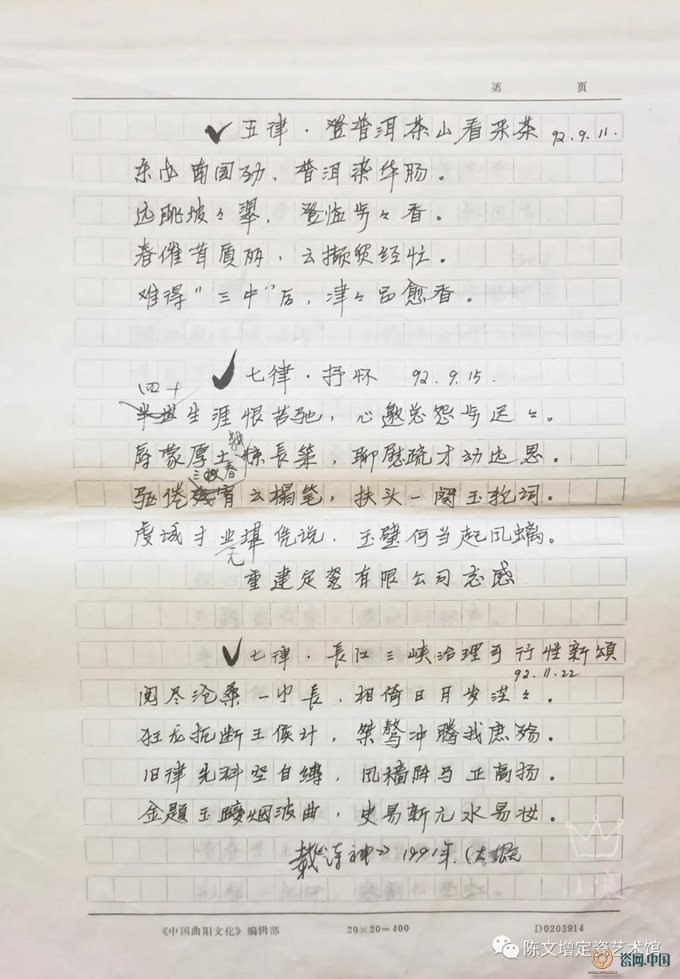 第 页
五律·登普洱茶山看采茶 92.9.11.
东南国劲，普洱染华肠。
远眺坡々翠，登临步々香。
春催茸质丽，云撷贸经忙。
难得“三中”后，津々品愈香。
七律·抒怀 92.9.15.
四十
生涯恨苦驰，心邀总怨步迟々。
辱蒙厚土惊長策，聊慰疏才动远思。
三秋春
驱倦云榻笔，扶头一阕玉轮词。
虔诚才堪凭说，玉璧何当起凤螭。
无
重建定瓷有限公司志感
七律·長江三峡治理可行性新頌
92.11.22
阅尽沧桑一中長，相倚日月岁茫々。
狂龙扼断王侯计，桀骜冲腾我庶殇。
旧律先科空自缚，风樯阵马正高扬。
金题玉躞烟波曲，史易新元水易妆。
载《诗神》1991年.
《中国曲阳文化》编辑部 20×20=400 D0203914
陈文增定瓷艺术馆
瓷网.中国